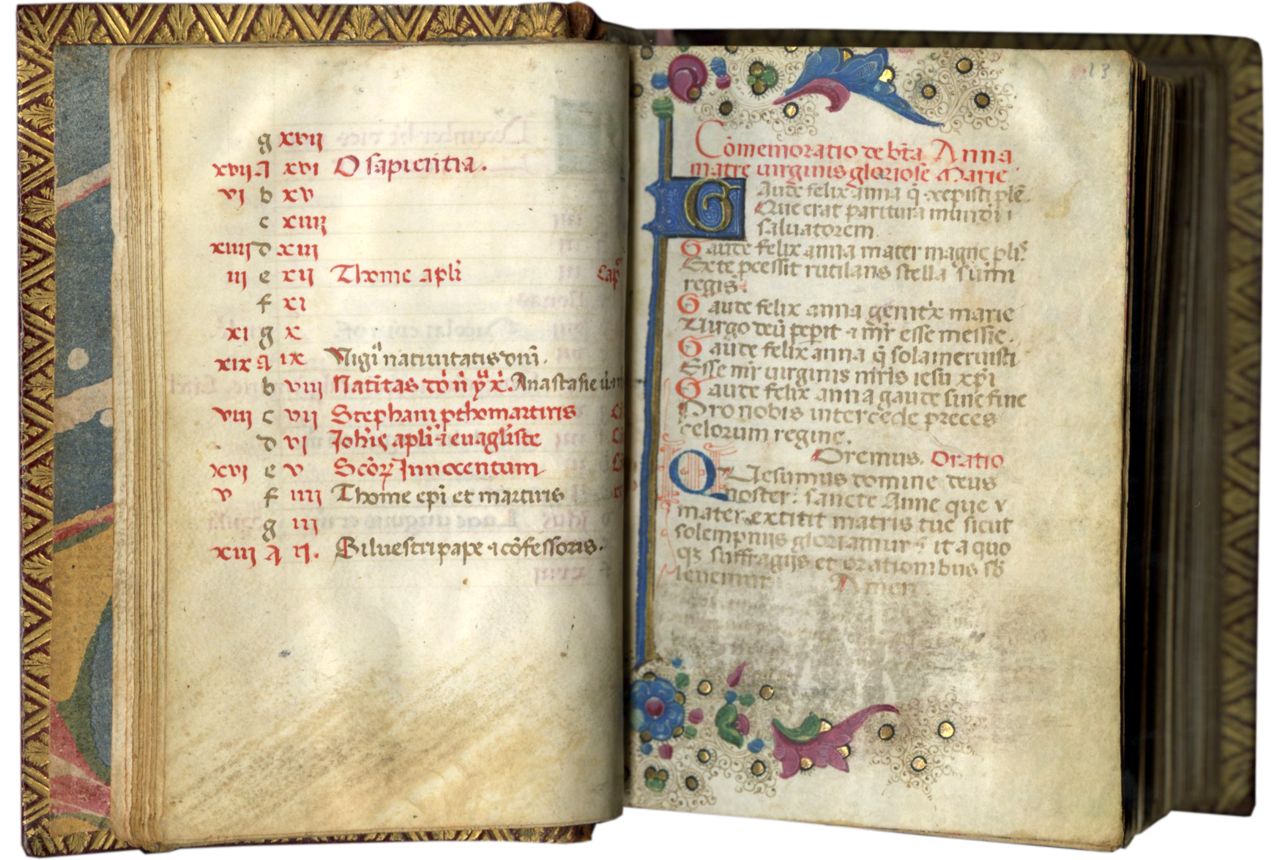 g xvii
xvii A xvi O sapientia.
vi b xv
c xiiij
xiiij d xiij
iij e xij Thome apli
f xi
xi g x
xix A ix Vigi nativitatis dni.
b viij Natitas dni yx. Anastasie
viij c vij Stephani pthomartiris
d vi Johis apli i evagliste
xvi e v Scor Innocentum
v f iiij Thome epi et martiris
g iij
xiij A ij. Silvestri pape 1 cofessoris.
13
Comemoratio de bta Anna
matre virginis gloriose Marie
Gaude felix anna q cepisti ple
Que erat paritura mundi
salvatorem.
Gaude felix anna mater magne plis
Ex te pcessit rutilans stella sumi
regis.
Gaude felix anna genitx marie
Virgo deu pepit 1 mr esse messie.
Gaude felix anna q sola meruisti
Esse mr virginis mris iesu xpi
Gaude felix anna gaude sine fine
Pro nobis intercede preces
celorum regine.
Oremus. Oratio
Quesumus domine deus
noster: sancte Anne que
mater extitit matris tue sicut
solempniis gloriamur: ita quo
qs suffragijs et orationibus sb
levemur Amen